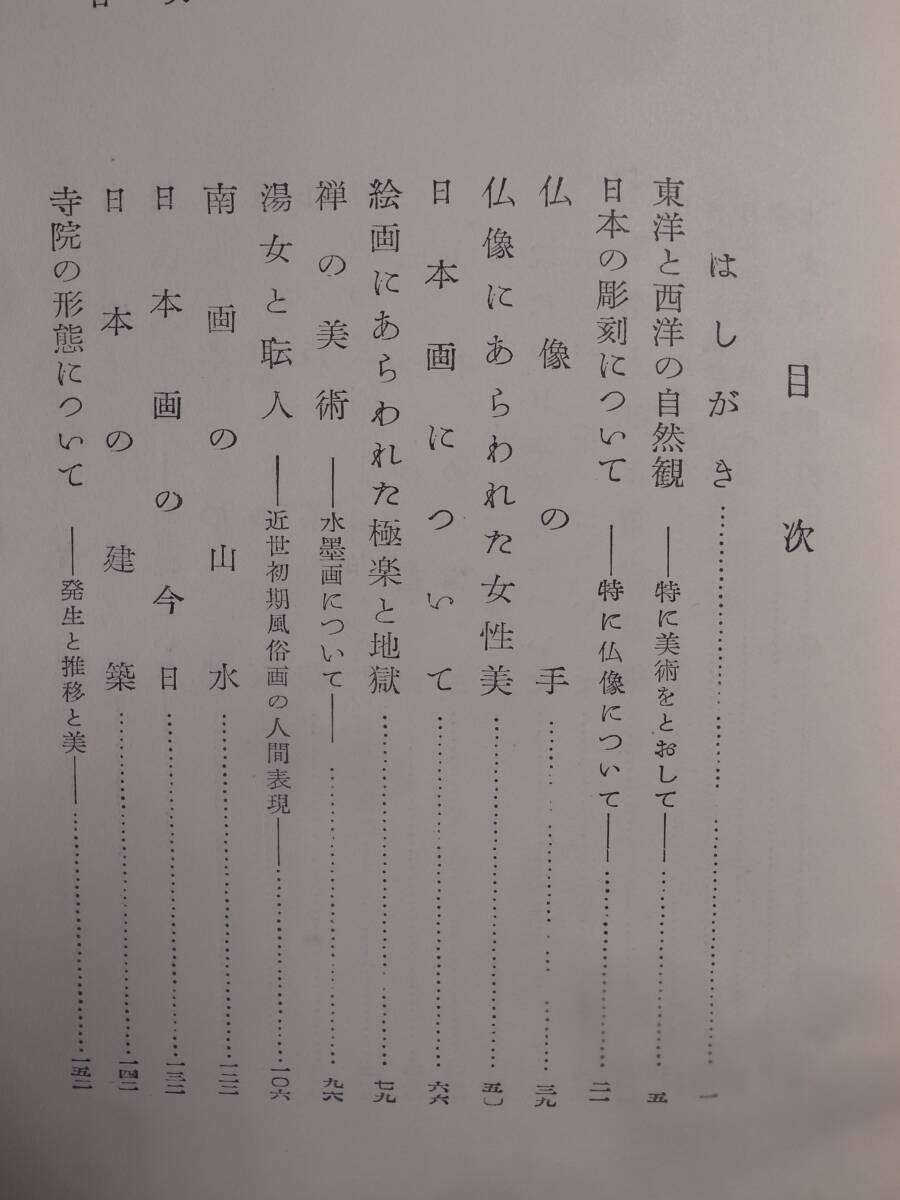 目次
はしがき……一
東洋と西洋の自然観 ――特に美術をとおして――……五
日本の彫刻について ――特に仏像について――……二一
仏像の手……三九
仏像にあらわれた女性美……五〇
日本画について……六六
絵画にあらわれた極楽と地獄……七九
禅の美術 ――水墨画について――……九六
湯女と転人 ――近世初期風俗画の人間表現――……一〇六
南画の山水……一二二
日本画の今日……一三二
日本の建築……一四二
寺院の形態について ――発生と推移と美――……一五二